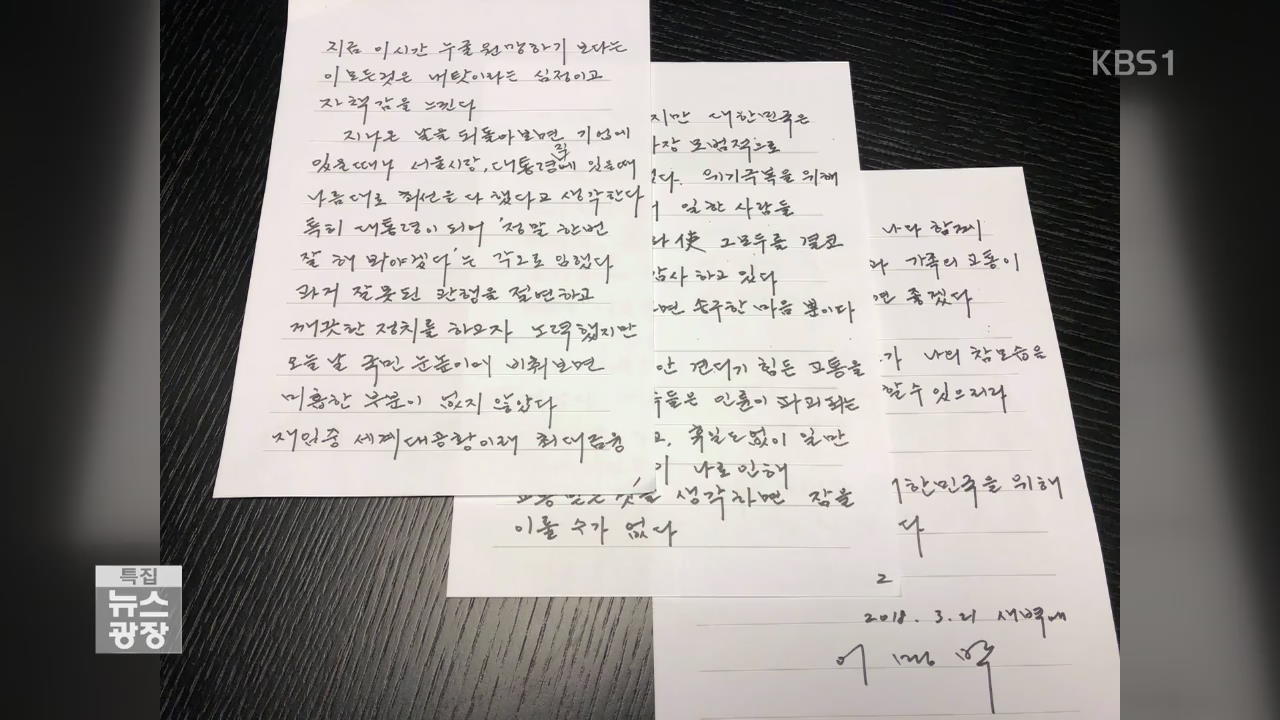 KBS1
지금 이시간 누굴원망하기 보다는
이 모든것은 내탓이라는 심정이고
자책감을 느낀다
지나온 날을 되돌아보면 기업에
있을때나 서울시장, 대통령직에 있을때
나름대로 최선을 다 했다고 생각한다
특히 대통령이 되어 '정말 한번
잘 해 봐야겠다'는 각오로 임했다
과거 잘못된 관행을 절연하고
깨끗한 정치를 하고자 노력했지만
오늘날 국민 눈높이에 비춰보면
미흡한 부분이 없지 않았다
재임중 세계대공황이래 최대금융
지만 대한민국은
가장 모범적으로
다. 위기극복을 위해
일한 사람들
使 그모두를 결코
감사 하고 있다
면 송구한 마음 뿐이다
안 견디기 힘든 고통을
들은 인륜이 파괴되는
고, 휴일도없이 일만
나로 인해
고통받는 것을 생각하면 잠을
이룰 수가 없다
2
나다 함께
가족의 고통이
면 좋겠다
가 나의 참모습을
할 수 있으리라
한민국을 위해
다
2018. 3. 21 새벽에
이명박
특집
뉴스
광장